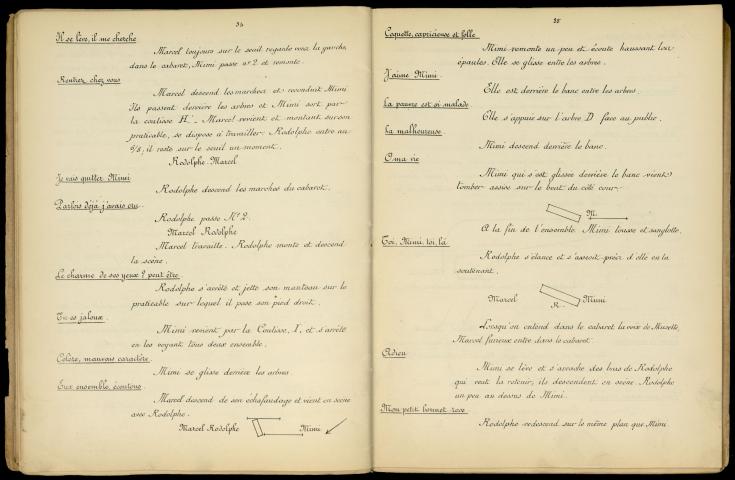 34
Il se lève, il me cherche
Marcel toujours sur le seuil regarde vers la gauche,
dans le cabaret, Mimi passe nº 2 et remonte.
Rentrez chez vous
Marcel descend les marches et reconduit Mimi
Ils passent derrière les arbres et Mimi sort par
la coulisse H. Marcel revient et montant sur son
praticable, se dispose à travailler. Rodolphe entre au
il reste sur le seuil un moment.
Rodolphe Marcel
Je vais quitter Mimi
Rodolphe descend les marches du cabaret.
Parfois déjà j'avais cru
Rodolphe passe Nº 2.
Marcel Rodolphe
Marcel travaille. Rodolphe monte et descend
la scène.
Le charme de ses yeux ? peut être
Rodolphe s'arrête et jette son manteau sur le
praticable sur lequel il pose son pied droit.
Tu es jaloux.
Mimi revient par la Coulisse, I, et s'arrête
en les voyant tous deux ensemble.
Colère, mauvais caractère.
Mimi se glisse derrière les arbres.
Eux ensemble, écoutons
Marcel descend de son échafaudage et vient en scène
avec Rodolphe.
Marcel Rodolphe Mimi
35
Coquette, capricieuse et folle
Mimi remonte un peu et écoute haussant les
épaules. Elle se glisse entre les arbres.
J'aime Mimi
Elle est derrière le banc entre les arbres.
La pauvre est si malade
Elle s'appuie sur l'arbre D face au public.
La malheureuse
Mimi descend derrière le banc.
O ma vie
Mimi qui s'est glissée derrière le banc vient
tomber assise sur le bout du côté cour.
M.
A la fin de l'ensemble Mimi tousse et sanglote.
Toi, Mimi, toi, là
Rodolphe s'élance et s'asseoit près d'elle en la
soutenant.
Marcel R. Mimi
Lorsqu'on entend dans le cabaret la voix de Musette,
Marcel furieux entre dans le cabaret.
Adieu
Mimi se lève et s'arrache des bras de Rodolphe
qui veut la retenir, ils descendent en scène. Rodolphe
un peu au dessus de Mimi.
Mon petit bonnet rose
Rodolphe redescend sur le même plan que Mimi.